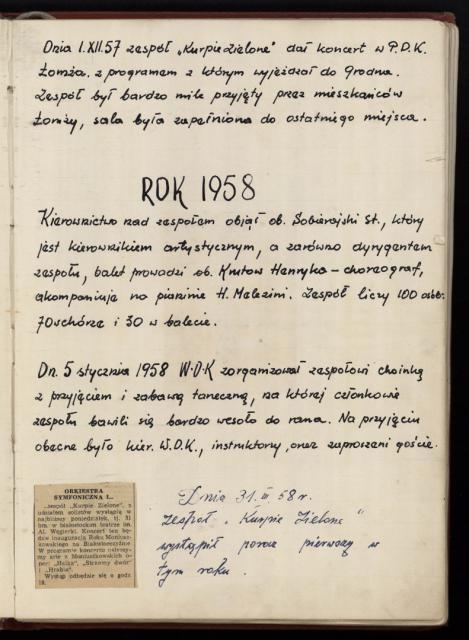 Dnia 1.XII.57 zespół „Kurpie Zielone" dał koncert w P.D.K.
Łomża. z programem z którym wyjeżdżał do Grodna.
Zespół był bardzo mile przyjęty przez mieszkańców
Łomży, sala była zapełniona do ostatniego miejsca.
ROK 1958
Kierownictwo nad zespołem objął ob. Sobierajski St., który
jest kierownikiem artystycznym, a zarówno dyrygentem
zespołu, balet prowadzi ob. Krutow Henryka – choreograf,
akompaniuje na pianinie H. Malezini. Zespół liczy 100 osób.
70 w chórze i 30 w balecie.
Dn. 5 stycznia 1958 W.D.K zorganizował zespołowi choinkę
z przyjęciem i zabawą taneczną, na której członkowie
zespołu bawili się bardzo wesoło do rana. Na przyjęciu
obecne było kier. W.D.K., instruktorzy, oraz zaproszeni goście.
ORKIESTRA
SYMFONICZNA I...
...zespół „Kurpie Zielone", z
udziałem solistów wystąpią w
najbliższy poniedziałek, tj. 31
bm. w białostockim teatrze im.
Al. Węgierki. Koncert ten bę-
dzie inauguracją Roku Moniusz-
kowskiego na Białostocczyźnie.
W programie koncertu usłyszy-
my arie z Moniuszkowskich o-
per: „Halka", „Straszny dwór"
i „Hrabina".
Występ odbędzie się o godz.
19.
Dnia 31. III 58 r.
zespół „Kurpie Zielone"
wystąpił poraz pierwszy w
tym roku.